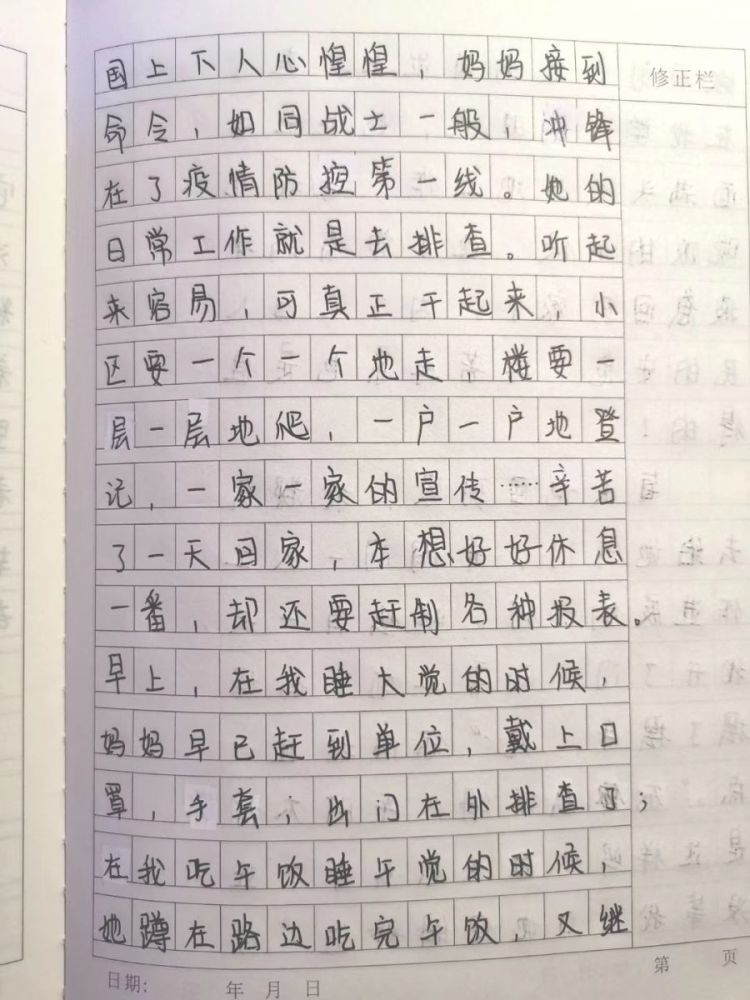 国上下人心惶惶，妈妈接到
修正栏
命令，如同战士一般，冲锋
在了疫情防控第一线。她的
日常工作就是去排查。听起
来容易，可真正干起来，小
区要一个一个地走，楼要一
层一层地爬，一户一户地登
记，一家一家的宣传……辛苦
了一天回家，本想好好休息
一番，却还要赶制各种报表。
早上，在我睡大觉的时候，
妈妈早已赶到单位，戴上口
罩，手套，出门在外排查了；
在我吃午饭睡午觉的时候，
她蹲在路边吃完午饭，又继
日期： 年 月 日
第 页